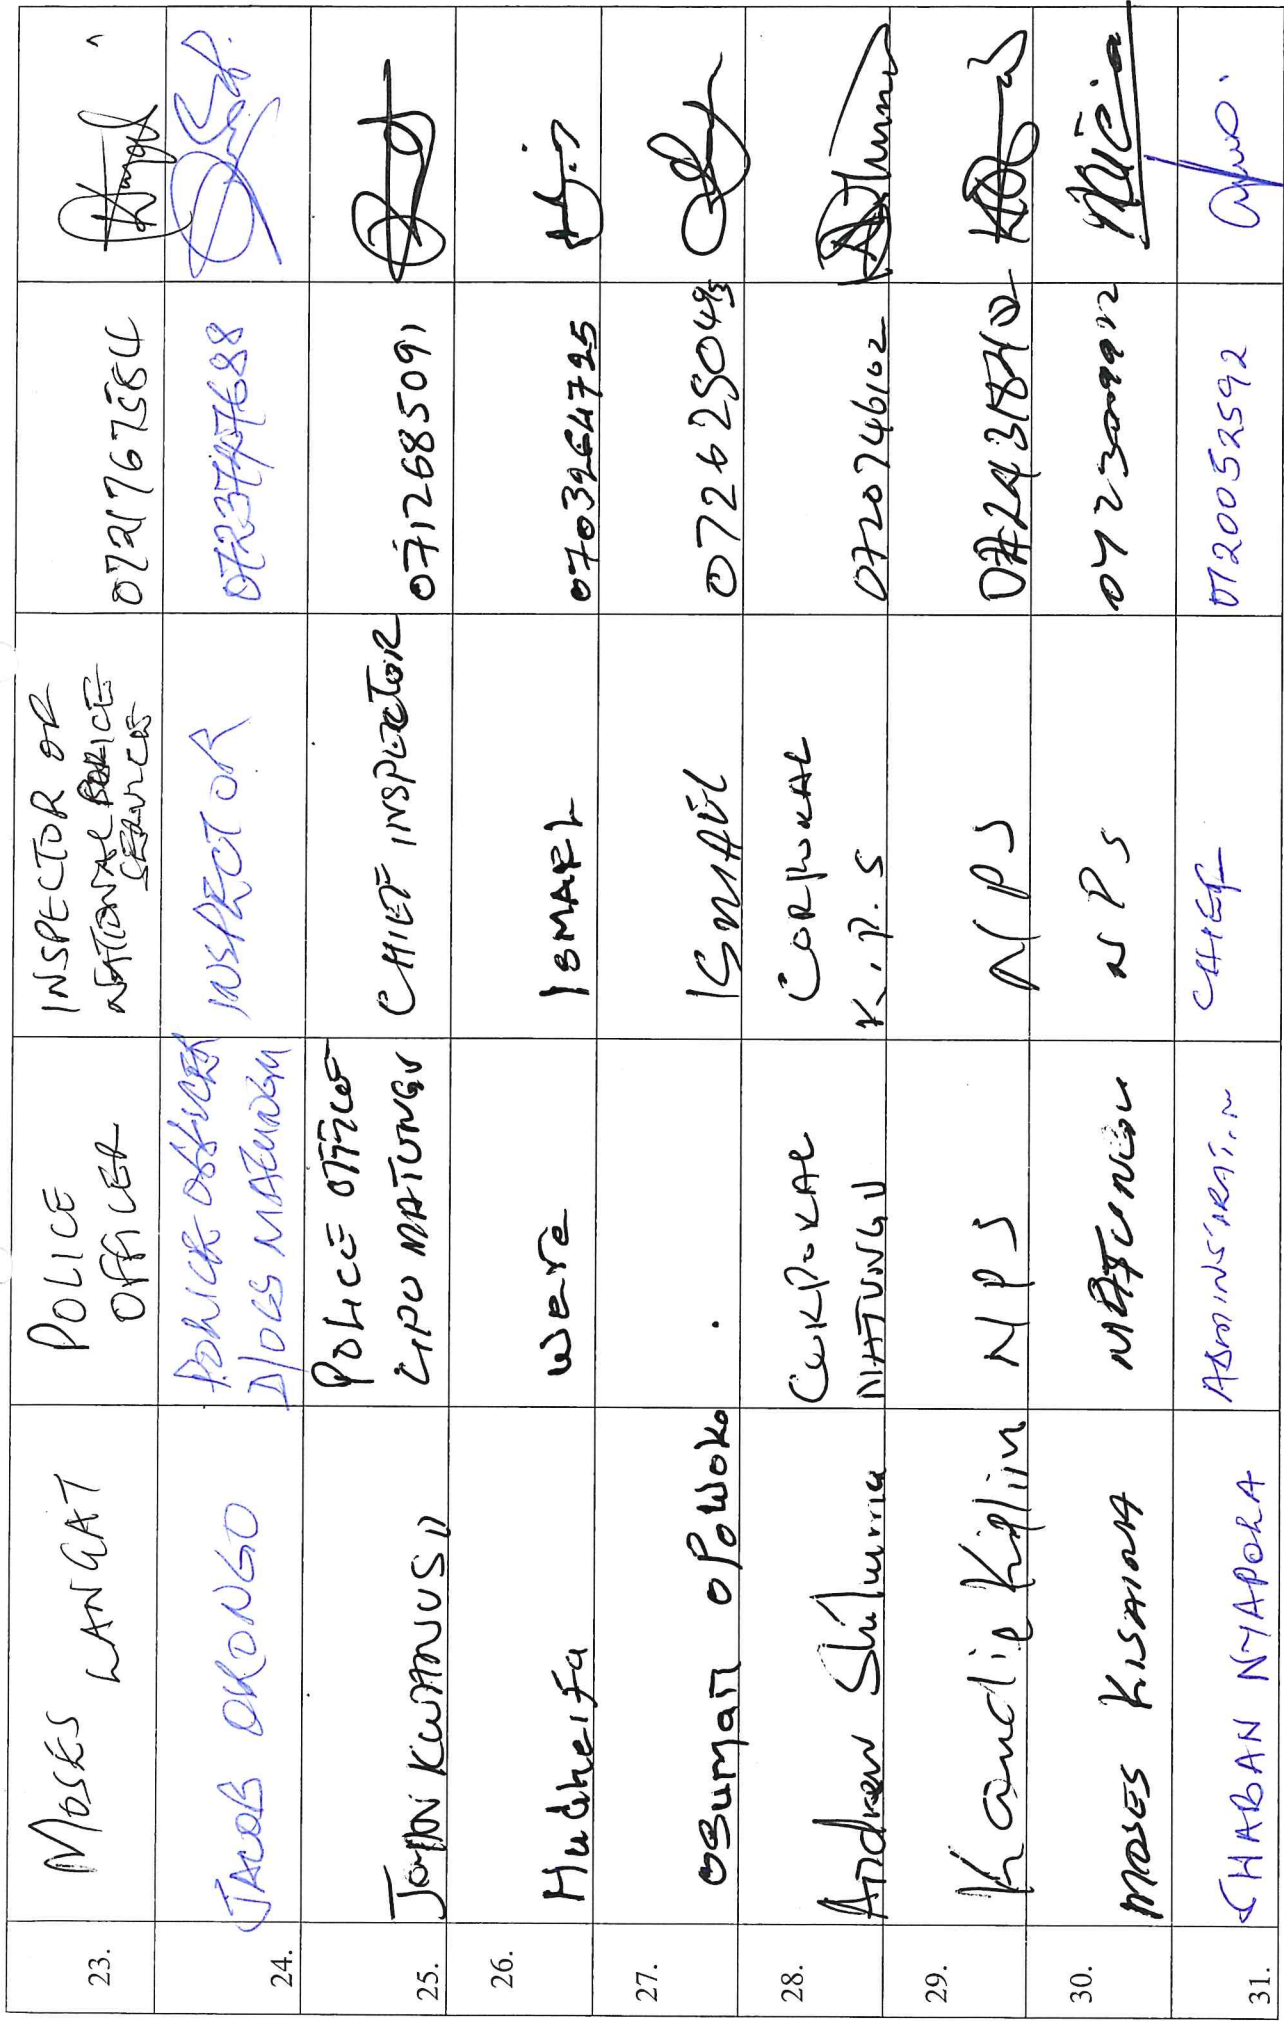 23.
MOSES LANGAT
POLICE
OFFICER
INSPECTOR OR
NATIONAL POLICE
SERVICES
0721767584
24.
JACOB OKONGO
POLICE OFFICER
D/OCS MATUNGU
INSPECTOR
0723747688
25.
JOHN KWANUSU
POLICE OFFICER
GPU MATUNGU
CHIEF INSPECTOR
0712685091
26.
Hudheifa
were
ISMAEL
0703264725
27.
OSuman OPowoko
ISMAEL
28.
Andrew Shilumia
CORPORAL
MATUNGU
CORPORAL
K.P.S
0720746102
29.
Kandie Kiplin
NPS
NPS
30.
MOSES KISAINA
MATUNGU
NPS
31.
SHABAN NYAPOLA
CHIEF
0720052592